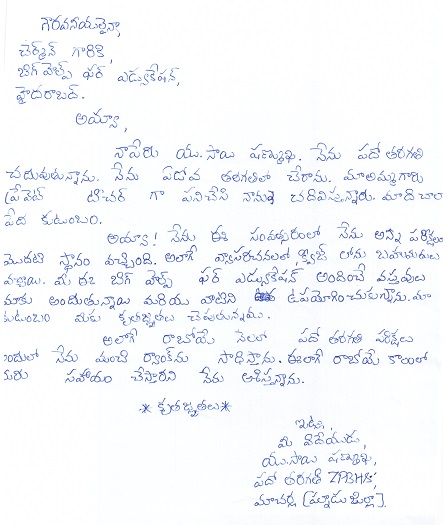 గౌరవనీయులైన,
చైర్మన్ గారికి,
బిగ్ హెల్ప్ ఫర్ ఎడ్యుకేషన్,
హైదరాబాద్.
అయ్యా,
నాపేరు యు.సాయి షణ్ముఖి. నేను పదో తరగతి
చదువుతున్నాను. నేను ఏడోవ తరగతిలో చేరాను. మాఅమ్మగారు
ప్రైవేట్ టీచర్ గా పనిచేసి నామ్మకి చదివిస్తున్నారు. మాది చాలా
పేద కుటుంబం.
అయ్యా! నేను ఈ సంవత్సరంలో నేను అన్ని పరీక్షలు
మొదటి స్థానం వచ్చింది. అలాగే వ్యాసరచనలలో, క్విజ్ లోను బహుమతులు
వచ్చాయి. మీ ఈ బిగ్ హెల్ప్ ఫర్ ఎడ్యుకేషన్ అందించే వస్తువులు
మాకు అందుతున్నాయి మరియు వాటిని ఉపయోగించుకున్నాను. మా
కుటుంబం మీకు కృతజ్ఞతలు చెపుతున్నము.
అలాగే రాబోయే నెలలో పదో తరగతి పరీక్షలు
ందులో నేను మంచి ర్యాంక్‌ను సాధిస్తాను. ఈలాగే రాబోయే కాలంలో
మీరు సహాయం చేస్తారని నేను ఆశిస్తున్నాను.
* కృతజ్ఞతలు *
ఇట్లు,
మీ విదేయుడు,
యు.సాయి షణ్ముఖి,
పదో తరగతి ZPBHS,
మాచర్ల [గుంటూరు జిల్లా].